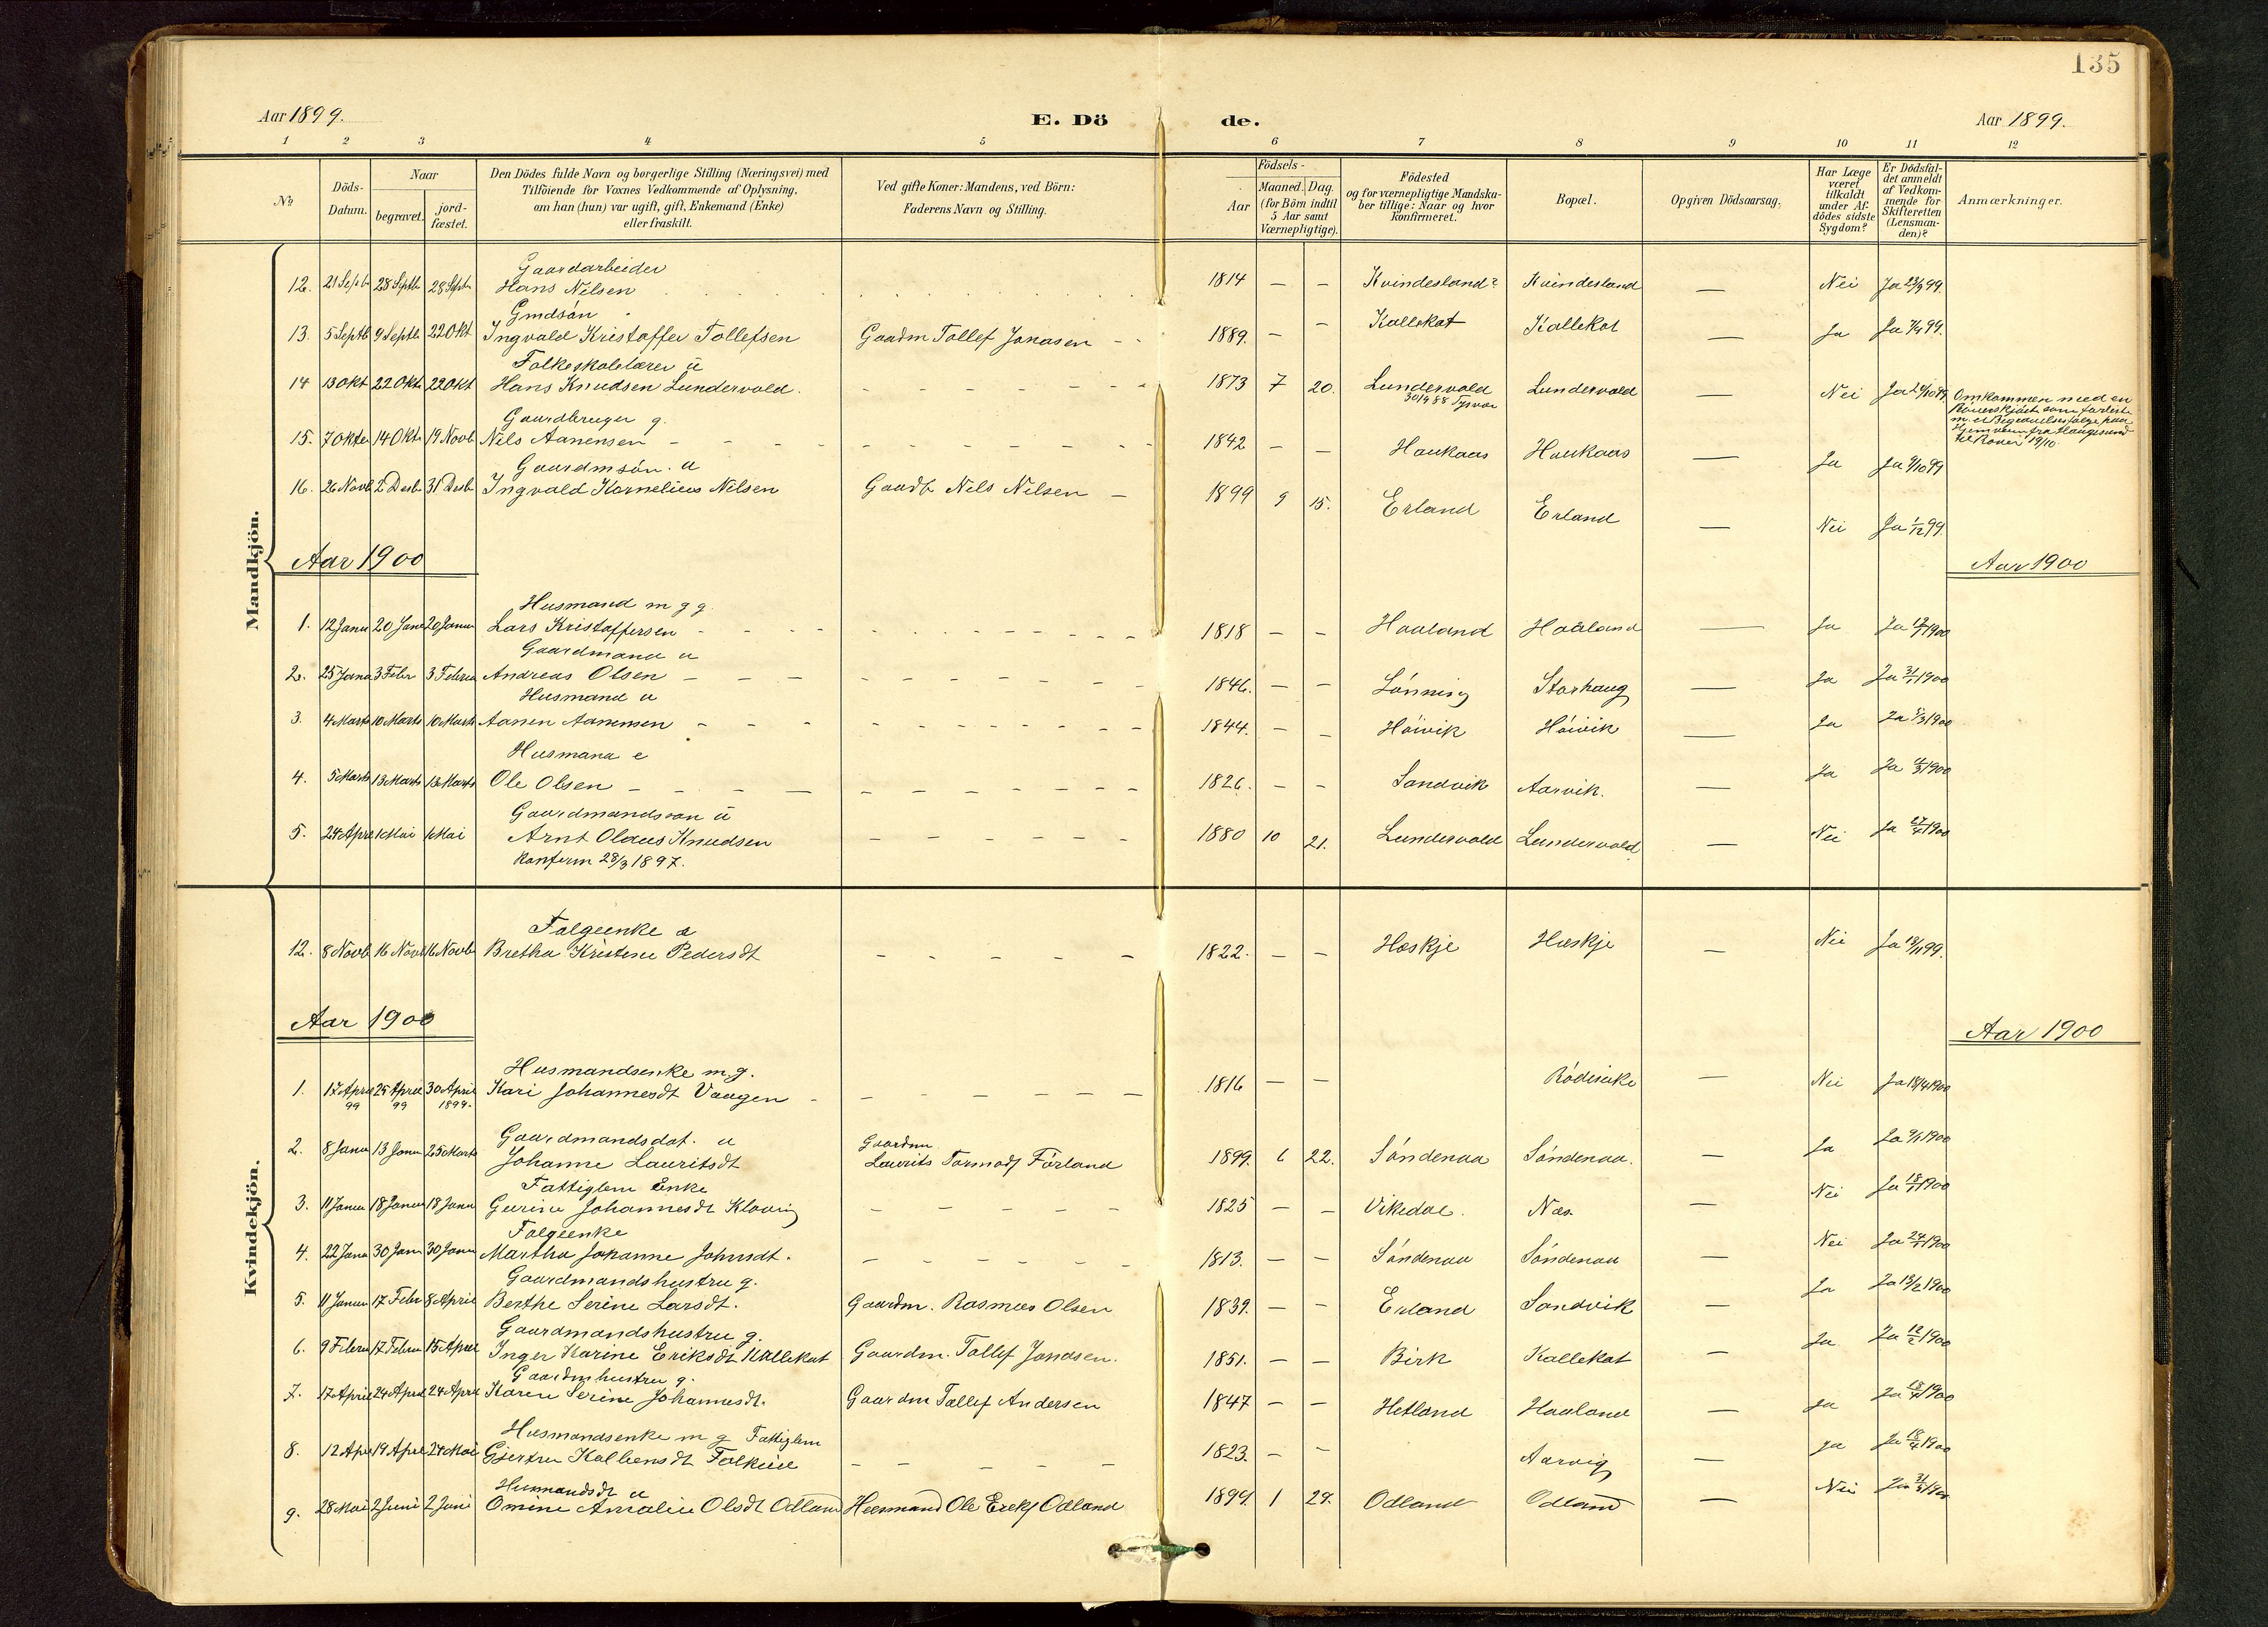 135
Aar 1899. E. Dö de. Aar 1899.
1 2 3 4 5 6 7 8 9 10 11 12
No Döds-Datum. Naar begravet. jord-fæstet. Den Dödes fulde Navn og borgerlige Stilling (Næringsvei) med Tilföiende for Voxnes Vedkommende af Oplysning, om han (hun) var ugift, gift, Enkemand (Enke) eller fraskilt. Ved gifte Koner: Mandens, ved Börn: Faderens Navn og Stilling. Födsels- Aar Maaned. Dag. (for Börn indtil 5 Aar samt Værnepligtige). Födested og for værnepligtige Mandska-ber tillige: Naar og hvor konfirmeret. Bopæl. Opgiven Dödsaarsag. Har Læge været tilkaldt under Af-dödes sidste Sygdom? Er Dödsfal-det anmeldt af Vedkom-mende for Skifteretten (Lensman-den)? Anmærkninger.
Mandkjön.
Gaardarbeider
12. 21 Septb 28 Septb 28 Septb Hans Nilsen 1814 – – Kvindesland? Kvindesland — Nei Ja 23/9 99.
Gmdsön
13. 5 Septb 9 Septb 22 Okt Ingvald Kristoffer Tollefsen Gaardm Tollef Jonasen 1889. – – Kallekot Kallekot — Ja Ja 7/9 99.
Folkeskolelærer u
14 13 Okt 22 Okt 22 Okt Hans Knudsen Lundervold. 1873 7 20. Lundervold Lundervold — Nei Ja
30/9 88 Tysvær
Omkommen med en
m. et Begravelsesfølge paa
Hjemveien fra Haugesund
19/10.
Gaardbruger g.
15. 7 Oktb 14 Okt 19 Novb Nils Aanensen 1842 – – Haukaas Haukaas — Ja Ja 9/10 99
Gaardmsön. u
16. 26 Novb 2 Desb 31 Desb Ingvald Kornelius Nilsen Gaardb Nils Nilsen 1899 9 15. Erland Erland — Nei Ja 1/12 99.
Aar 1900 Aar 1900
Husmand m g g.
1. 12 Janu 20 Janu 20 Janu Lars Kristoffersen 1818 – – Haaland Haaland — Ja Ja
Gaardmand u
2. 25 Janu 3 Febr 3 Februa Andreas Olsen 1846. – – Lønning Storhaug — Ja Ja
Husmand u
3. 4 Marts 10 Marts 10 Marts Aanen Aanensen 1844. – – Høivik Høivik — Ja Ja 5/3 1900
Husmand e
4. 5 Marts 13 Marts 13 Marts Ole Olsen 1826. – – Sandvik Aarvik. — Ja Ja
Gaardmandssøn u
5. 24 April 1 Mai 1 Mai Arnt Olaus Knudsen 1880 10 21. Lundervold Lundervold — Nei Ja 27/4 1900
Konferm 28/3 1897.
Kvindekjön.
Følgeenke
12. 8 Novb 16 Novb 16 Novb Bretha Kristine Pedersdt 1822. – – Hæskje Hæskje — Nei Ja 13/11 99.
Aar 1900 Aar 1900
Husmandsenke m. g.
1. 17 April 25 April 30 April Kari Johannesdt Vaagen 1816 – – — Nei Ja 18/4 1900
99 99 1899.
Gaardmandsdat. u Gaardm
2. 8 Janu 13 Janu 25 Marts Johanne Lauritsdt Laurits Tormods Førland 1899. 6 22. Søndenaa Søndenaa. — Ja Ja 9/1 1900
Fattiglem Enke
3. 11 Janu 18 Janu 18 Janu Gurine Johannesdt Kloving 1825 – – Vikedal. Næs — Nei Ja 18/1 1900
Følgeenke
4. 22 Janu 30 Janu 30 Janu Martha Johanne Johnsdt. 1813. – – Søndenaa Søndenaa — Nei Ja 24/1 1900
Gaardmandshustru g.
5. 11 Janu 17 Febr 8 April Berthe Serine Larsdt. Gaardm. Rasmus Olsen 1839. – – Erland Sandvik — Ja Ja 13/2 1900
Gaardmandshustru g.
6. 9 Febru 17 Febru 15 April Inger Karine Eriksdt Kallekot Gaardm. Tollef Jonasen. 1851. – – Birk Kallekot — Ja Ja 12/2 1900
Gaardmhustru g.
7. 17 April 24 April 24 April Karen Serine Johannesdt. Gaardm Tollef Andersen 1847 – – Hetland Haaland — Ja Ja 18/4 1900
Husmandsenke m g Fattiglem
8. 12 Apr 19 April 24 Mai Gjertru Kolbensdt 1823. – – Aarvig — Ja Ja 18/4 1900
Husmandsdt u
9. 28 Mai 2 Juni 2 Juni Omine Amalie Olsdt Odland Husmand Ole Ereks Odland 1899. 1 29. Odland Odland — Nei Ja 31/5 1900